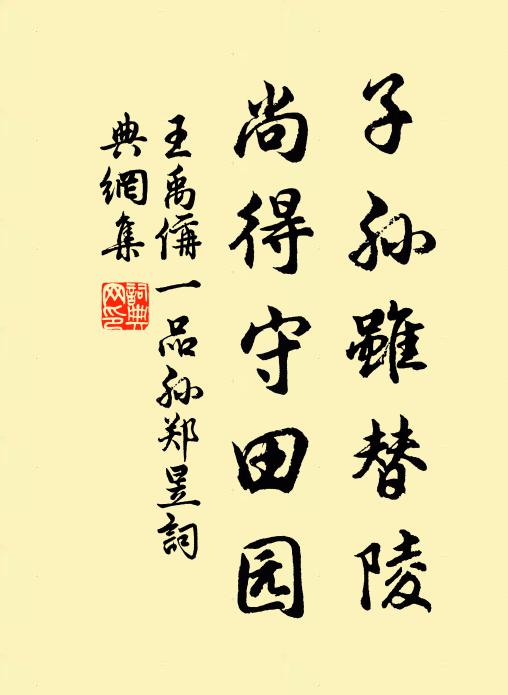 子孙雖替陵
尚得守田园
王禹偁一品孙郑昱詞
典網集
詞典网印